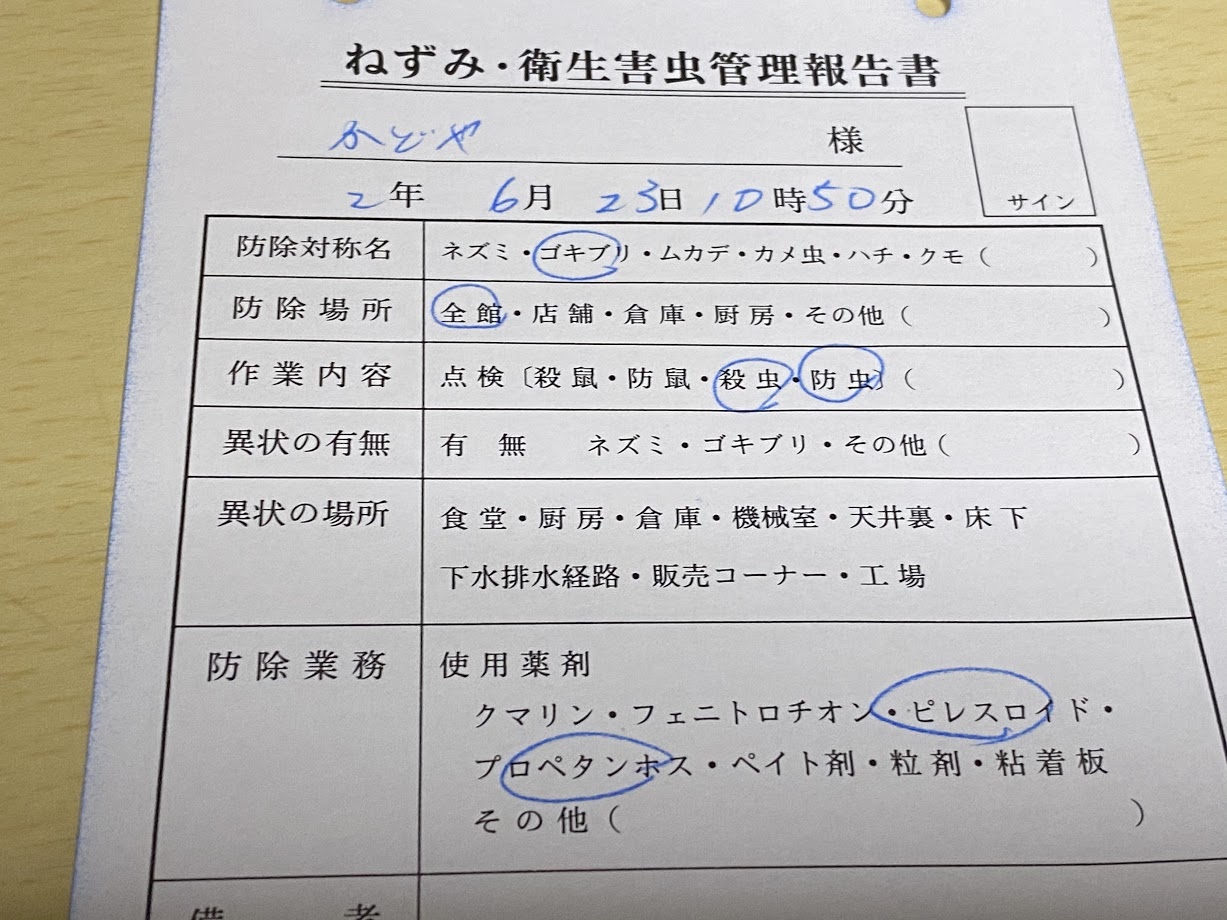 ねずみ・衛生害虫管理報告書
かどや 様
2年 6月 23日 10時50分
サイン
防除対称名 ネズミ・ゴキブリ・ムカデ・カメ虫・ハチ・クモ（ ）
防除場所 全館・店舗・倉庫・厨房・その他（ ）
作業内容 点検〔殺鼠・防鼠・殺虫・防虫〕（ ）
異状の有無 有 無 ネズミ・ゴキブリ・その他（ ）
異状の場所 食堂・厨房・倉庫・機械室・天井裏・床下
下水排水経路・販売コーナー・工場
防除業務 使用薬剤
クマリン・フェニトロチオン・ピレスロイド・
プロペタンホス・ペイト剤・粒剤・粘着板
その他（ ）
備考